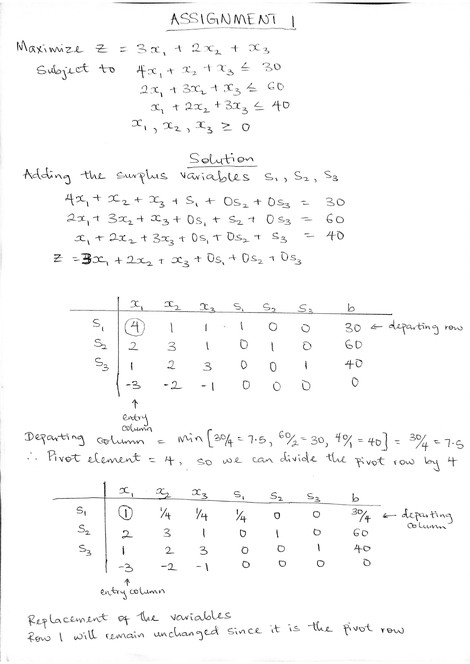 ASSIGNMENT 1
Maximize Z = 3x₁ + 2x₂ + x₃
Subject to 4x₁ + x₂ + x₃ ≤ 30
2x₁ + 3x₂ + x₃ ≤ 60
x₁ + 2x₂ + 3x₃ ≤ 40
x₁, x₂, x₃ ≥ 0
Solution
Adding the surplus variables S₁, S₂, S₃
4x₁ + x₂ + x₃ + S₁ + 0S₂ + 0S₃ = 30
2x₁ + 3x₂ + x₃ + 0S₁ + S₂ + 0S₃ = 60
x₁ + 2x₂ + 3x₃ + 0S₁ + 0S₂ + S₃ = 40
Z = 3x₁ + 2x₂ + x₃ + 0S₁ + 0S₂ + 0S₃
x₁ x₂ x₃ S₁ S₂ S₃ b
S₁ 4 1 1 1 0 0 30 ← departing row
S₂ 2 3 1 0 1 0 60
S₃ 1 2 3 0 0 1 40
-3 -2 -1 0 0 0 0
↑
entry
column
Departing column = min [30/4 = 7.5, 60/2 = 30, 40/1 = 40] = 30/4 = 7.5
∴ Pivot element = 4, so we can divide the pivot row by 4
x₁ x₂ x₃ S₁ S₂ S₃ b
S₁ 1 1/4 1/4 1/4 0 0 30/4 ← departing
column
S₂ 2 3 1 0 1 0 60
S₃ 1 2 3 0 0 1 40
-3 -2 -1 0 0 0 0
↑
entry column
Replacement of the variables
Row 1 will remain unchanged since it is the pivot row